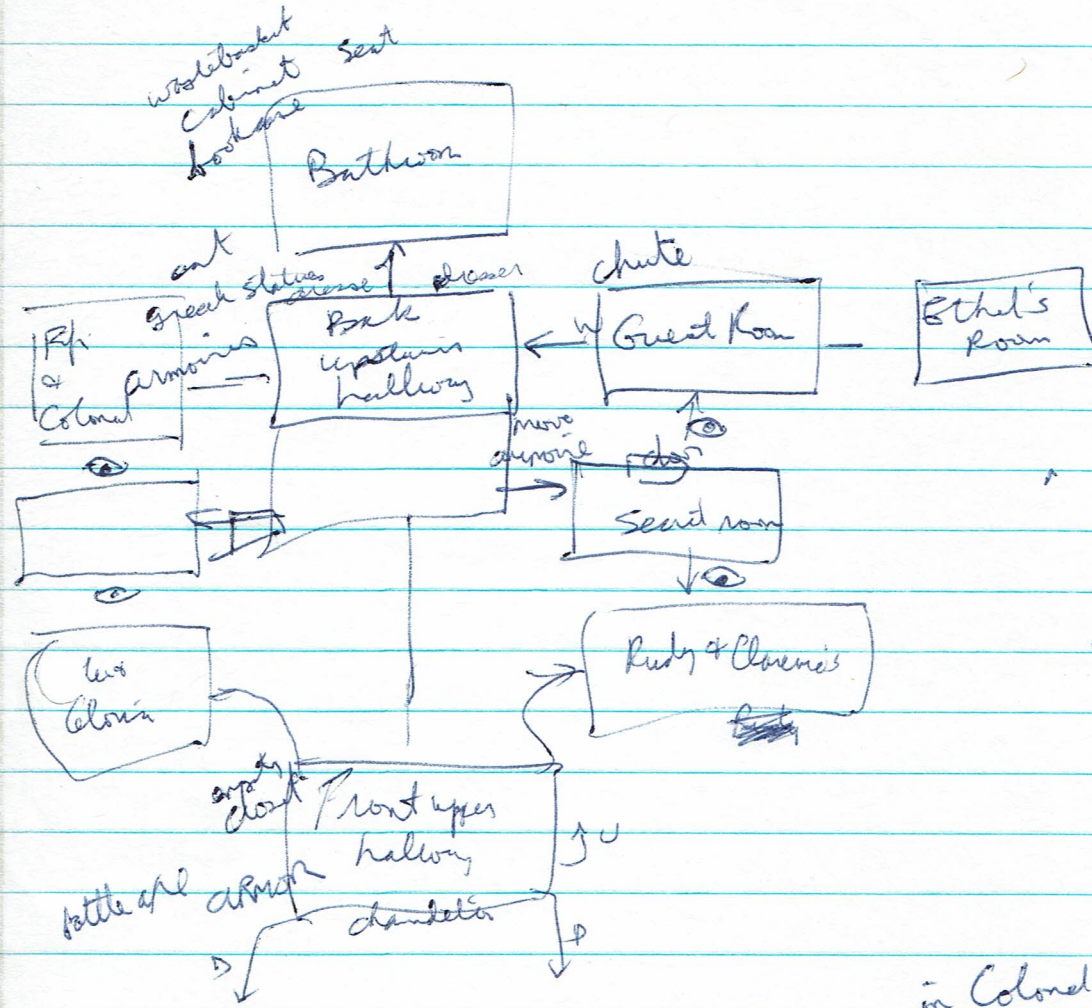 wastebasket
cabinet seat
bookcase
Bathroom
art
greek statues
dresser
chute
armoires
Back
upstairs
hallway
W
Guest Room
Ethel's
Room
&
Colonel
move
armoire
door
Secret room
Leo
Gloria
Rudy & Clarence's
empty
closet
Front upper
hallway
U
battle axe
ARMOR
chandelier
D
D
in Colonel